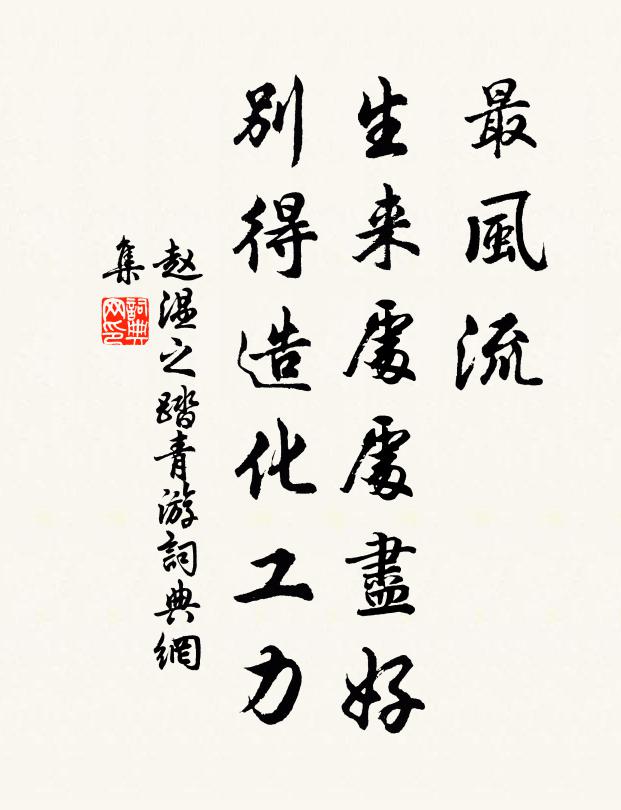 最風流
生来處處盡好
別得造化工力
赵温之踏青游詞典網
集
詞典
网印